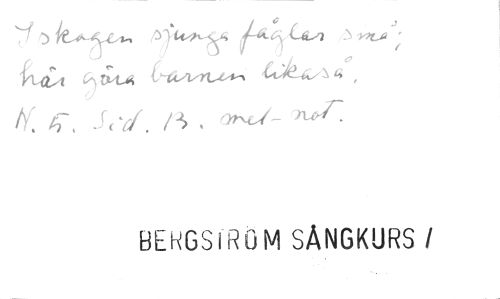 I skogen sjunga fåglar små;
här göra barnen likaså.
N. 5. Sid. 13. mel-not.
BERGSTRÖM SÅNGKURS /